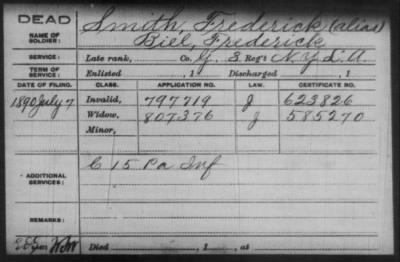 DEAD
NAME OF SOLDIER:
Smith, Frederick (alias)
Biel, Frederick
SERVICE: Late rank, Co. G, 3 Reg't N.Y.L.A.
TERM OF SERVICE: Enlisted , 1 Discharged , 1
DATE OF FILING. CLASS. APPLICATION NO. LAW. CERTIFICATE NO.
1890 July 7 Invalid, 797719 J 623826
Widow, 807376 J 585270
Minor,
C 15 Pa Inf
ADDITIONAL SERVICES:
REMARKS:
Died , 1 , at